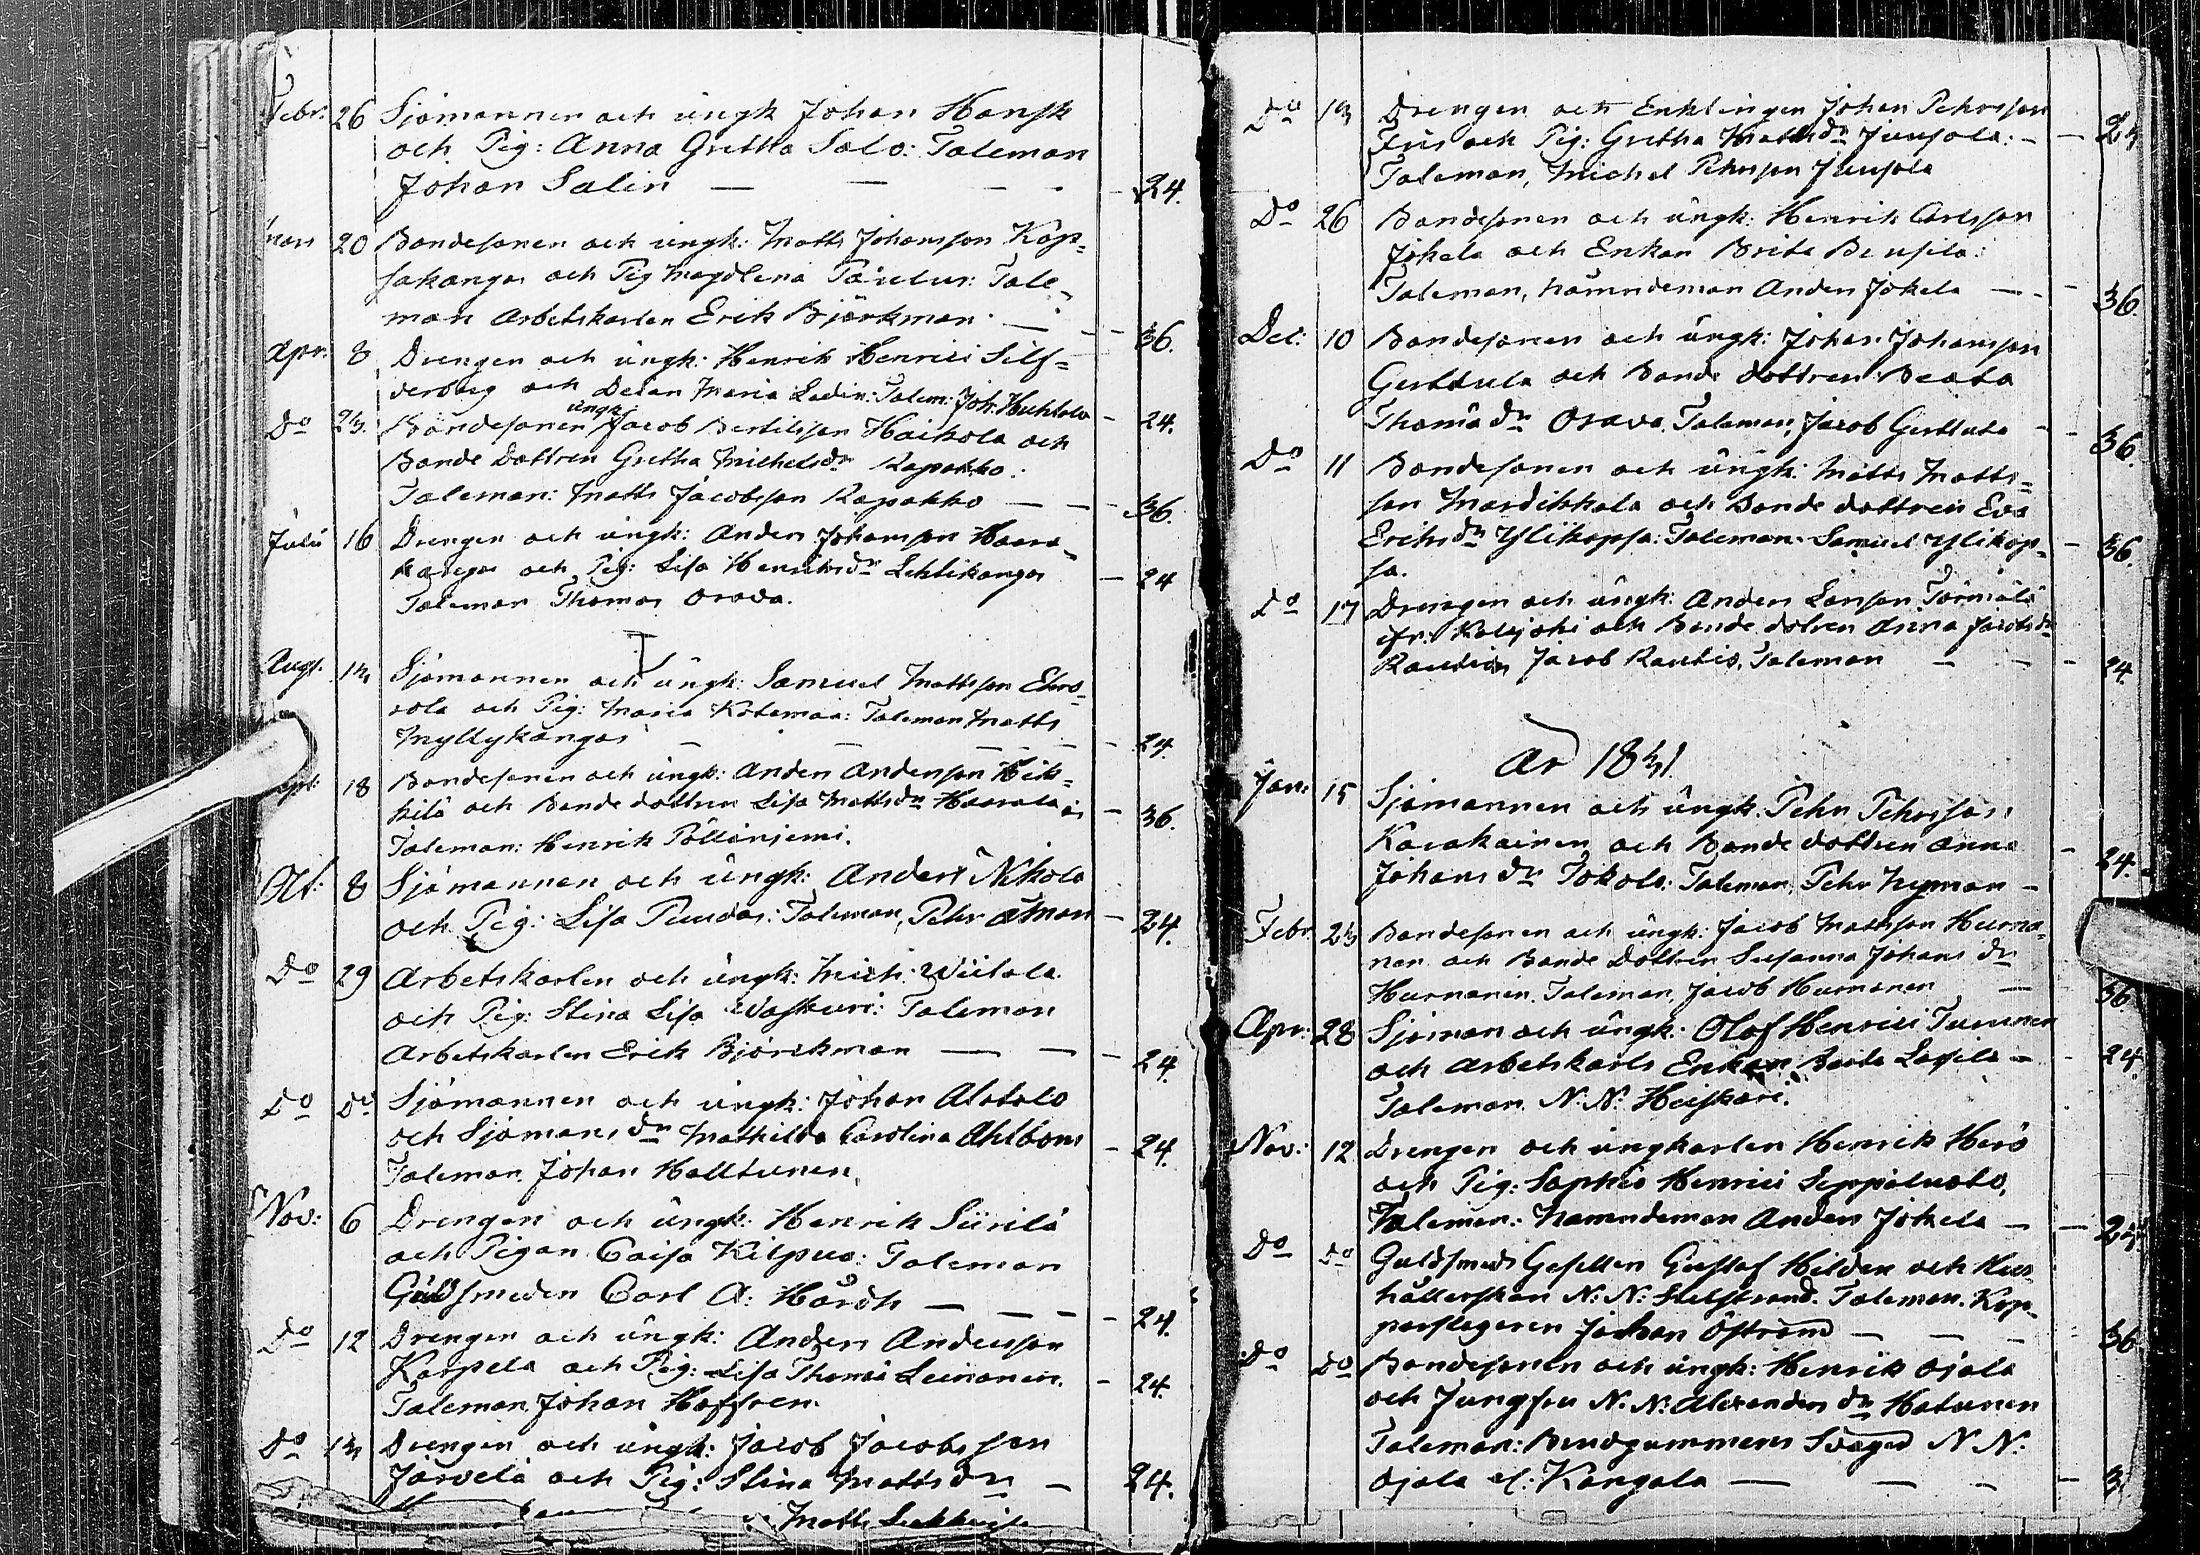 Febr. 26 Sjömannen och ungk Johan Hansk
och Pig: Anna Gretha Salo: Taleman
Johan Salin — — — 24.
Mars 20 Bondesonen och ungk: Matts Johansson Kop=
sakangas och Pig Magdlena Taleman
man Arbetskarlen Erik Björkman — 36.
Apr. 8 Drengen och ungk: Henrik Henrici Silf=
verberg och Maria Ledin: Talem: Joh: Huhtala 24.
Do 23. Bondesonen ungk. Jacob Bertilsson Haikola och
Bonde Dottren Gretha Michelsdr Rapakko.
Taleman: Matts Jacobsson Rapakko — — 36.
Julii 16 Drengen och ungk: Anders Johansson Haara=
kangas och Pig: Lisa Henriksdr Lehtikangas — 24
Taleman Thomas Orava.
Aug. 13 Sjömannen och ungk: Samuel Mattsson
och Pig: Maria Kotamaa: Taleman Matts
Myllykangas — — — 24.
Sept: 18 Bondesonen och ungk: Anders Andersson Heik=
kilä och Bonde dottren Lisa Mattsdr Haarala — 36.
Taleman: Henrik Pöllänjemi.
Oct: 8 Sjömannen och ungk: Anders Nikola
och Pig: Lisa Puudas: Taleman, Pehr Åman — 24.
Do 29 Arbetskarlen och ungk: Mich: Wiitala
och Pig: Stina Lisa Waskuri: Taleman
Arbetskarlen Erik Björkman — — 24.
Do Do Sjömannen och ungk: Johan Alatalo
och Sjömans dr Mathilda Carolina Ahlbom — 24.
Taleman Johan Halltunen,
Nov: 6 Drengen och ungk: Henrik Siirilä
och Pigan Caisa Kilpua: Taleman
Guldsmeden Carl A: Hårdh — — — 24.
Do 12 Drengen och ungk: Anders Andersson
Karpela och Pig: Lisa Thomä Leinonen. — 24.
Taleman Johan Hoffren.
Do 13 Drengen och ungk: Jacob Jacobsson
Järvelä och Pig: Stina Matts dr — 24.
Matts
Do 13 Drengen och Enklingen Johan Pehrsson
Friis och Pig: Gretha Mattsdr Junsola: — 24
Taleman, Michel Pehrsson Junsola
Do 26 Bondesonen och ungk: Henrik Carlsson
Jokela och Enkan Brita
Taleman, Nämndeman Anders Jokela — 36.
Dec: 10 Bondesonen och ungk: Johan Johansson
Gerttula och Bonde dottren Beata
Thomä dr Orava. Taleman, Jacob Gerttula — 36.
Do 11 Bondesonen och ungk: Matts Matts=
son Mardikkala och Bonde dottren Eva
Eriks dr Ylikopsa: Taleman. Samuel Ylikop= — 36.
sa.
Do 17 Drengen och ungk: Anders Larsson Törmälä
ifr. Kalajoki och Bonde dotren Anna Jacobs dr
Rautio, Jacob Rautio, Taleman — — — 24.
År 1831.
Jan: 15 Sjömannen och ungk. Pehr Pehrsson
Karakainen och Bonde dottren Anna — 24.
Johans dr Tokola: Taleman, Pehr Nyman —
Febr 23 Bondesonen och ungk: Jacob Mattsson Hurna=
nen och Bonde Dottren Susanna Johans dr
Hurnanen. Taleman, Jacob Hurnanen — 36
Apr: 28 Sjöman och ungk: Olof Henrici Tuninen
och Arbetskarls Enkan Beata Lassila — 24.
Taleman N: N: Heiskari.
Nov: 12 Drengen och ungkarlen Henrik Herö
och Pig: Sophia Henrici Seppäluoto,
Taleman: Nämndeman Anders Jokela — — 24.
Do Do Guldsmeds Gesällen Gustaf Hilden och Hus=
hållerskan N: N: Stålstrand. Taleman. Kop=
parslagaren Johan Öström — — — 36
Do Do Bondesonen och ungk: Henrik Ojala
och Jungfru N. N: Alexanders dr Hatunen
Taleman: Brudgummens Svåger N N:
Ojala el: Kangala — — — 3